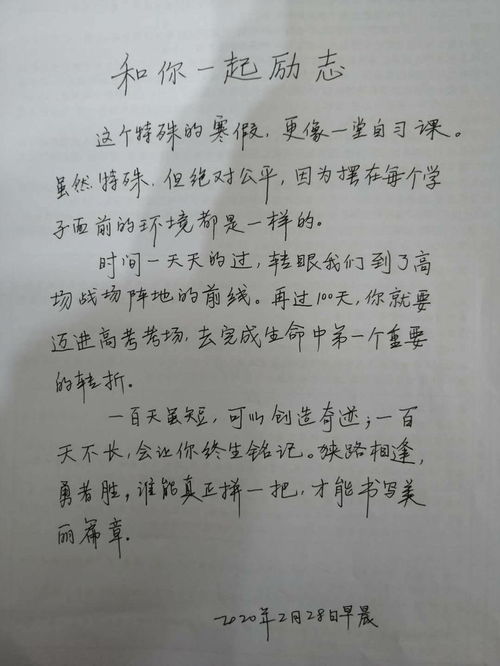 和你一起励志
这个特殊的寒假，更像一堂自习课。
虽然特殊，但绝对公平，因为摆在每个学
子面前的环境都是一样的。
时间一天天的过，转眼我们到了高
场战场阵地的前线。再过100天，你就要
迈进高考考场，去完成生命中第一个重要
的转折。
一百天虽短，可以创造奇迹；一百
天不长，会让你终生铭记。狭路相逢，
勇者胜，谁能真正拼一把，才能书写美
丽篇章.
2020年2月28日早晨